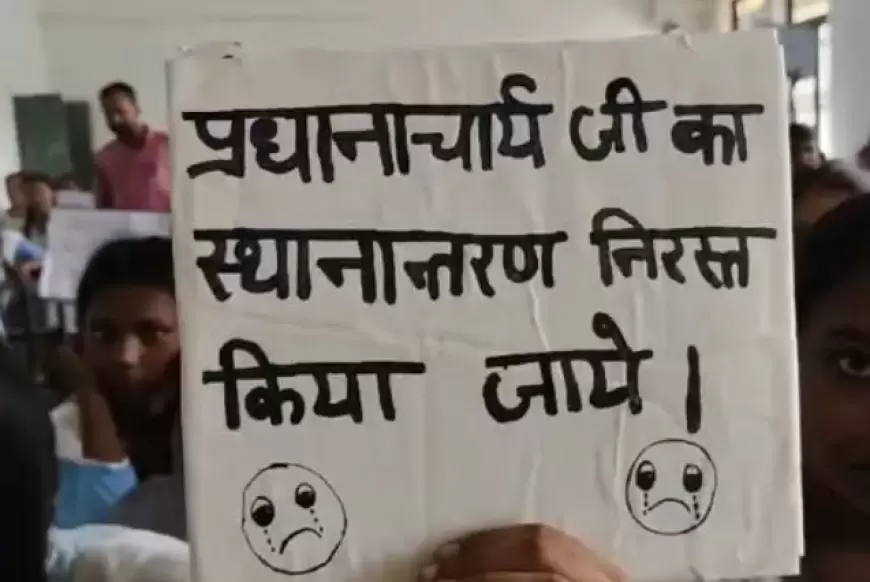 प्रधानाचार्य जी का
स्थानान्तरण निरस्त
किया जाये।